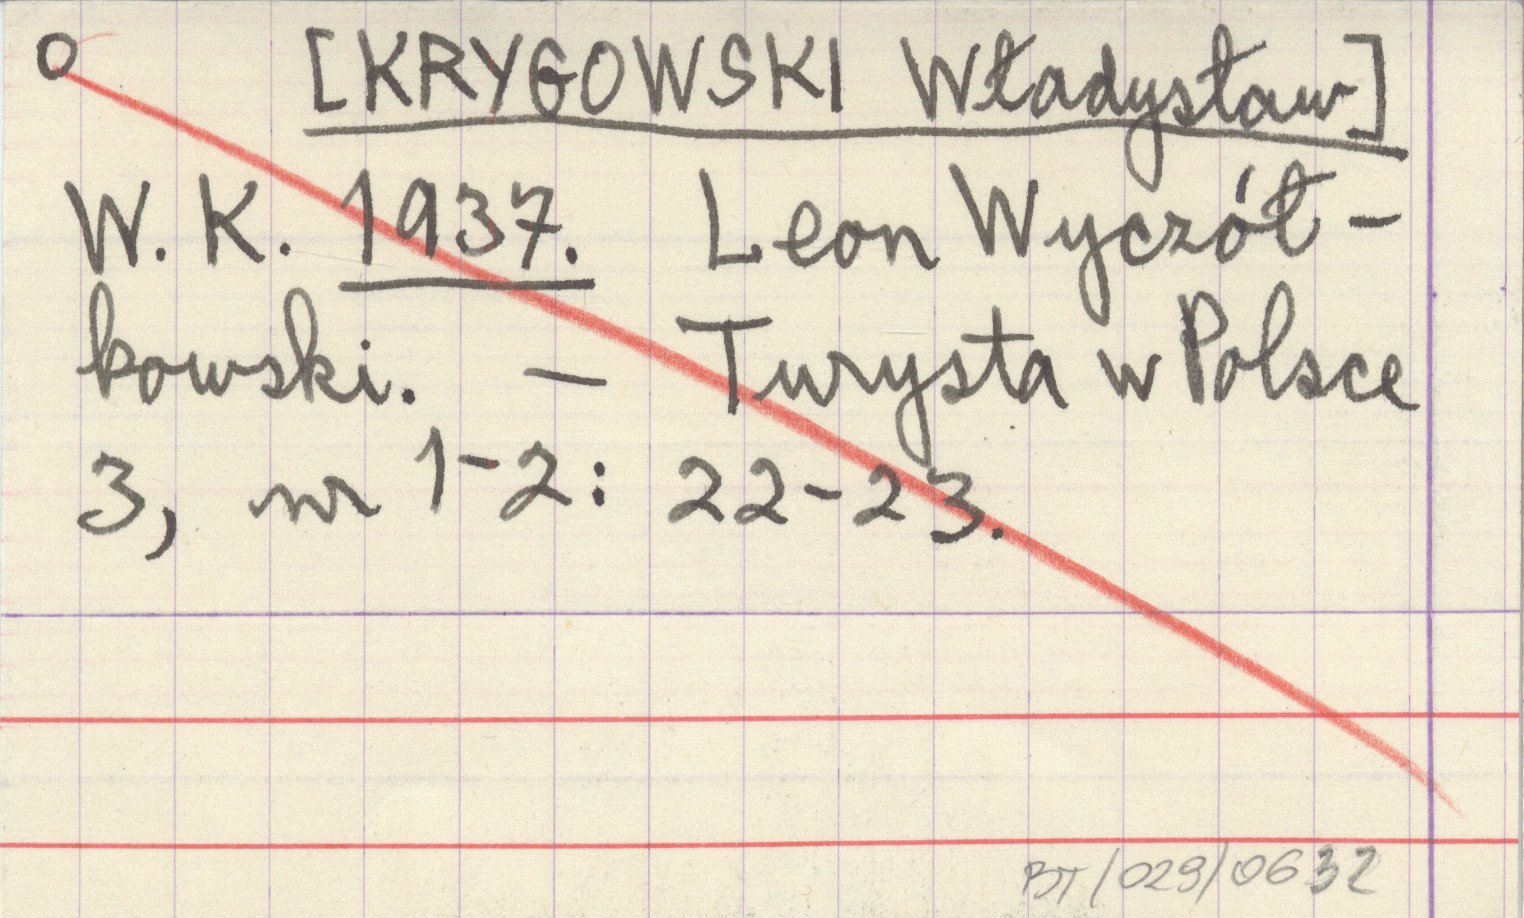 O [KRYGOWSKI Władysław]
W. K. 1937. Leon Wyczół-
kowski. — Turysta w Polsce
3, nr 1-2: 22-23.
BT/029/0632